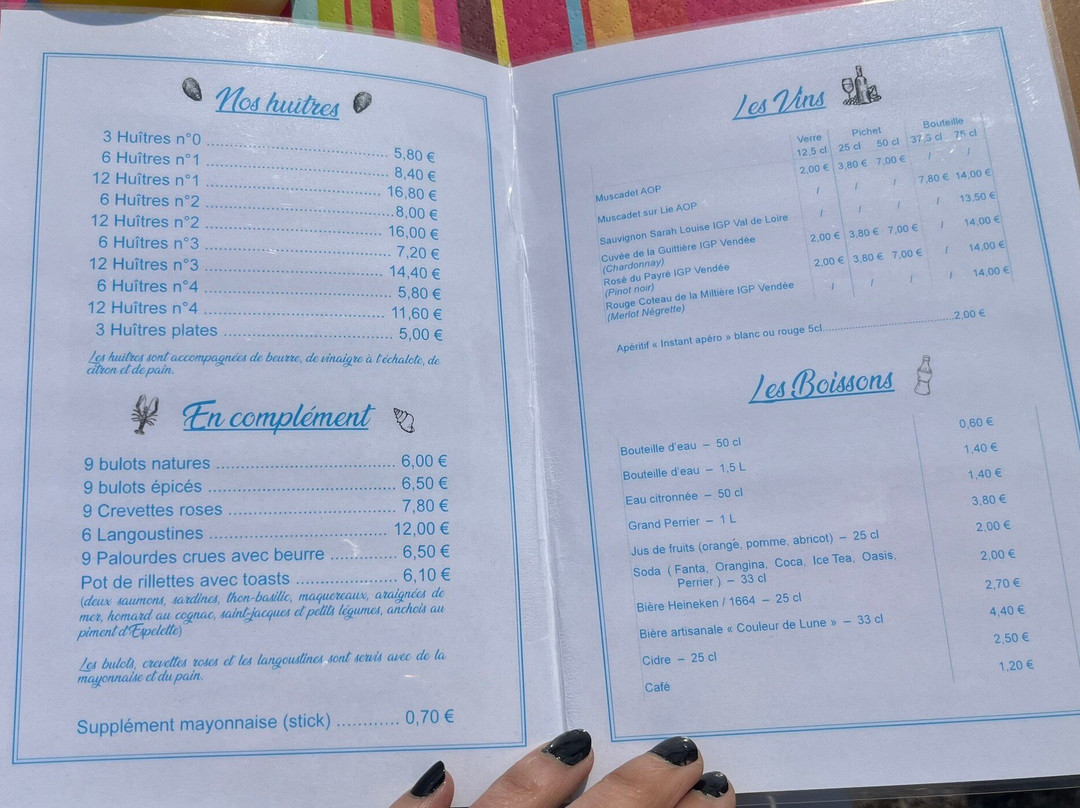 Nos huîtres
3 Huîtres n°0 ........ 5,80 €
6 Huîtres n°1 ........ 8,40 €
12 Huîtres n°1 ........ 16,80 €
6 Huîtres n°2 ........ 8,00 €
12 Huîtres n°2 ........ 16,00 €
6 Huîtres n°3 ........ 7,20 €
12 Huîtres n°3 ........ 14,40 €
6 Huîtres n°4 ........ 5,80 €
12 Huîtres n°4 ........ 11,60 €
3 Huîtres plates ........ 5,00 €
Les huîtres sont accompagnées de beurre, de vinaigre à l'échalote, de
citron et de pain.
En complément
9 bulots natures ........ 6,00 €
9 bulots épicés ........ 6,50 €
9 Crevettes roses ........ 7,80 €
6 Langoustines ........ 12,00 €
9 Palourdes crues avec beurre ........ 6,50 €
Pot de rillettes avec toasts ........ 6,10 €
(deux saumons, sardines, thon-basilic, maquereaux, araignées de
mer, homard au cognac, saint-jacques et petits légumes, anchois au
piment d'Espelette)
Les bulots, crevettes roses et les langoustines sont servis avec de la
mayonnaise et du pain.
Supplément mayonnaise (stick) ............ 0,70 €
Les Vins
Verre Pichet Bouteille
12,5 cl 25 cl 50 cl 37,5 cl 75 cl
Muscadet AOP 2,00 € 3,80 € 7,00 € / /
Muscadet sur Lie AOP / / / 7,80 € 14,00 €
Sauvignon Sarah Louise IGP Val de Loire / / / / 13,50 €
Cuvée de la Guittière IGP Vendée 2,00 € 3,80 € 7,00 € / 14,00 €
(Chardonnay)
Rosé du Payré IGP Vendée 2,00 € 3,80 € 7,00 € / 14,00 €
(Pinot noir)
Rouge Coteau de la Miltière IGP Vendée / / / / 14,00 €
(Merlot Négrette)
Apéritif « Instant apéro » blanc ou rouge 5cl........2,00 €
Les Boissons
Bouteille d'eau – 50 cl 0,60 €
Bouteille d'eau – 1,5 L 1,40 €
Eau citronnée – 50 cl 1,40 €
Grand Perrier – 1 L 3,80 €
Jus de fruits (orange, pomme, abricot) – 25 cl 2,00 €
Soda ( Fanta, Orangina, Coca, Ice Tea, Oasis, 2,00 €
Perrier ) – 33 cl
Bière Heineken / 1664 – 25 cl 2,70 €
Bière artisanale « Couleur de Lune » – 33 cl 4,40 €
Cidre – 25 cl 2,50 €
Café 1,20 €